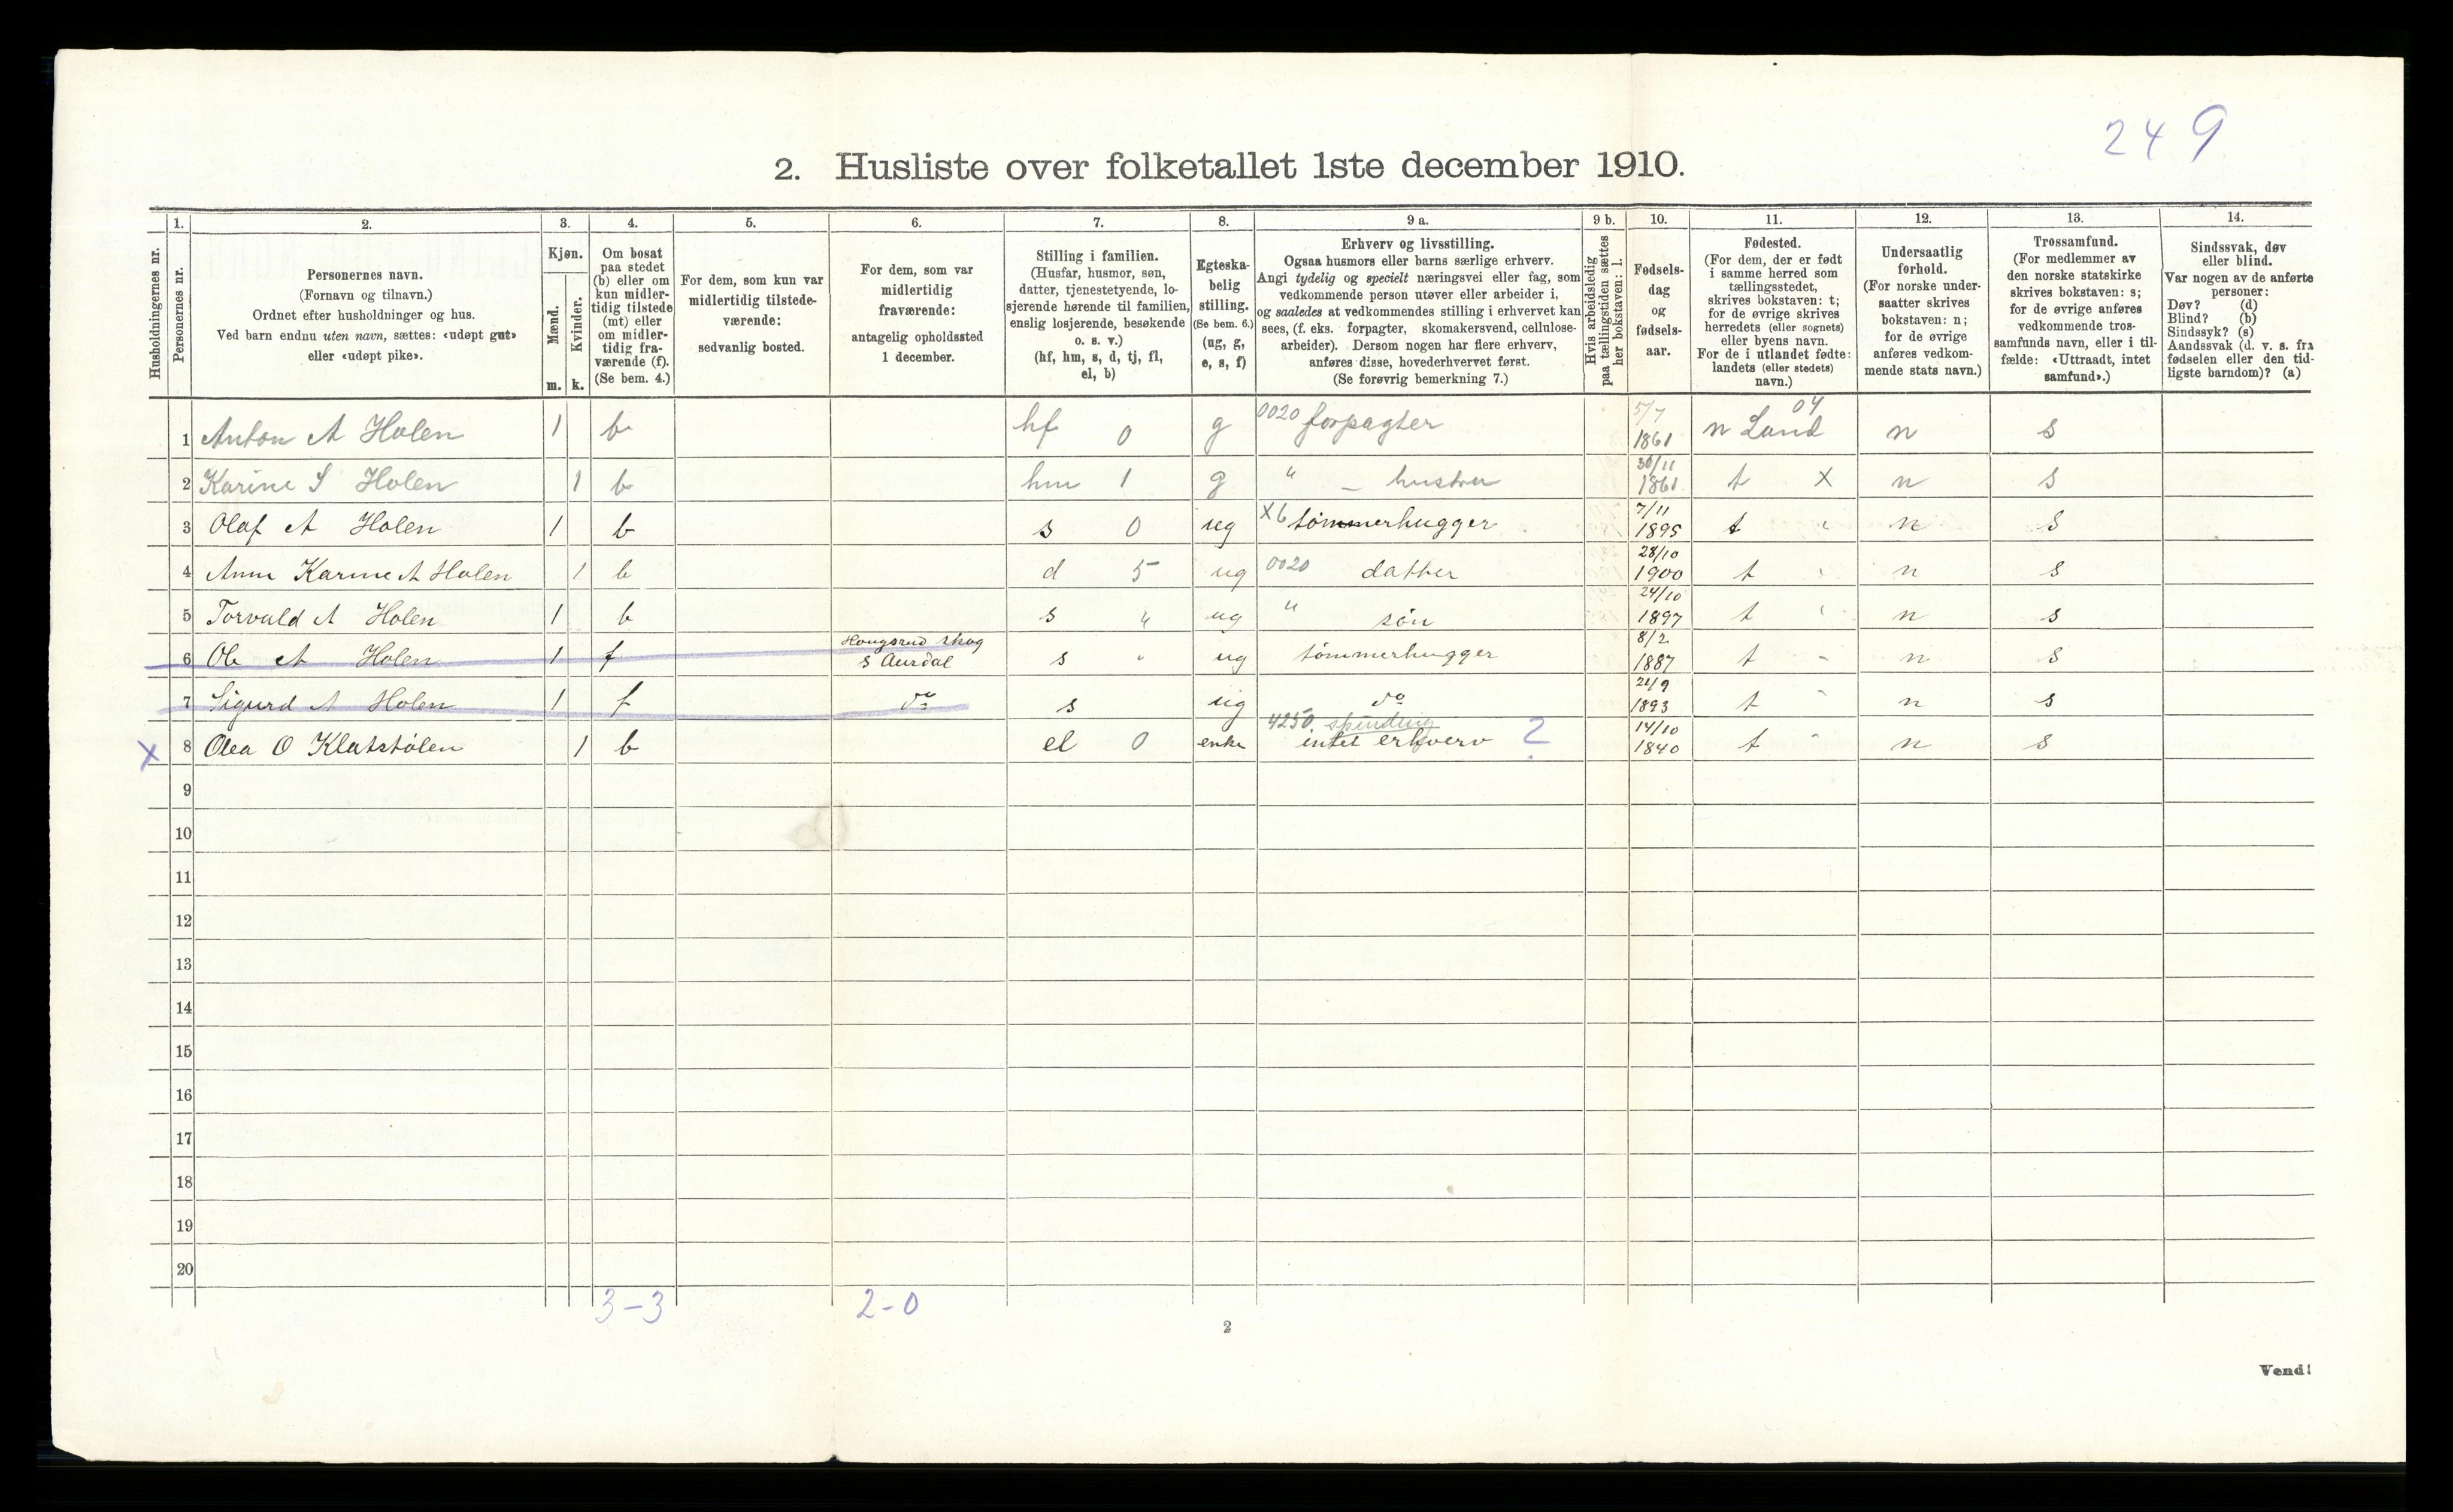 249
2. Husliste over folketallet 1ste december 1910.
Husholdningernes nr.
1.
Personernes nr.
2.
Personernes navn.
(Fornavn og tilnavn.)
Ordnet efter husholdninger og hus.
Ved barn endnu uten navn, sættes: «udøpt gut»
eller «udøpt pike».
3.
Kjøn.
Mænd.
Kvinder.
m. k.
4.
Om bosat
paa stedet
(b) eller om
kun midler-
tidig tilstede
(mt) eller
om midler-
tidig fra-
værende (f).
(Se bem. 4.)
5.
For dem, som kun var
midlertidig tilstede-
værende:
sedvanlig bosted.
6.
For dem, som var
midlertidig
fraværende:
antagelig opholdssted
1 december.
7.
Stilling i familien.
(Husfar, husmor, søn,
datter, tjenestetyende, lo-
sjerende hørende til familien,
enslig losjerende, besøkende
o. s. v.)
(hf, hm, s, d, tj, fl,
el, b)
8.
Egteska-
belig
stilling.
(Se bem. 6.)
(ug, g,
e, s, f)
9 a.
Erhverv og livsstilling.
Ogsaa husmors eller barns særlige erhverv.
Angi tydelig og specielt næringsvei eller fag, som
vedkommende person utøver eller arbeider i,
og saaledes at vedkommendes stilling i erhvervet kan
sees, (f. eks. forpagter, skomakersvend, cellulose-
arbeider). Dersom nogen har flere erhverv,
anføres disse, hovederhvervet først.
(Se forøvrig bemerkning 7.)
9 b.
Hvis arbeidsledig
paa tællingstiden sættes
her bokstaven: l.
10.
Fødsels-
dag
og
fødsels-
aar.
11.
Fødested.
(For dem, der er født
i samme herred som
tællingsstedet,
skrives bokstaven: t;
for de øvrige skrives
herredets (eller sognets)
eller byens navn.
For de i utlandet fødte:
landets (eller stedets)
navn.)
12.
Undersaatlig
forhold.
(For norske under-
saatter skrives
bokstaven: n;
for de øvrige
anføres vedkom-
mende stats navn.)
13.
Trossamfund.
(For medlemmer av
den norske statskirke
skrives bokstaven: s;
for de øvrige anføres
vedkommende tros-
samfunds navn, eller i til-
fælde: «Uttraadt, intet
samfund».)
14.
Sindssvak, døv
eller blind.
Var nogen av de anførte
personer:
Døv? (d)
Blind? (b)
Sindssyk? (s)
Aandssvak (d. v. s. fra
fødselen eller den tid-
ligste barndom)? (a)
1 Anton A Holen 1 b hf 0 g 0020 forpagter 5/7 1861 n Land 04 n s
2 Karine S Holen 1 b hm 1 g " — hustru 30/11 1861 t X n s
3 Olaf A Holen 1 b s 0 ug X6 tømmerhugger 7/11 1895 t n s
4 Anne Karine A Holen 1 b d 5 ug 0020 datter 28/10 1900 t n s
5 Torvald A Holen 1 b s " ug " søn 24/10 1897 t n s
6 Ole A Holen 1 f Hougsrud skog s Aurdal s ug tømmerhugger 8/2 1887 t n s
7 Sigurd A Holen 1 f do s ug do 21/9 1893 t n s
X 8 Olea O Klatstølen 1 b el 0 enke 4250 spinding intet erhverv ? 14/10 1840 t n s
9
10
11
12
13
14
15
16
17
18
19
20
3 – 3 2 - 0
2
Vend!